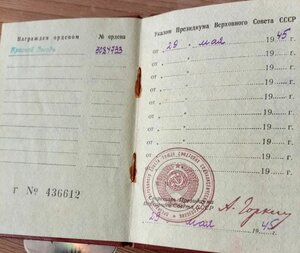 Награжден орденом № ордена
Красной Звезды 3034733
Г № 436612
Указом Президиума Верховного Совета СССР
от 29 мая 1945
от 19
от 19
от 19
от 19
от 19
от 19
от 19
от 19
Секретарь Президиума
Верховного Совета СССР
А. Горкин
29 мая 1945 г.